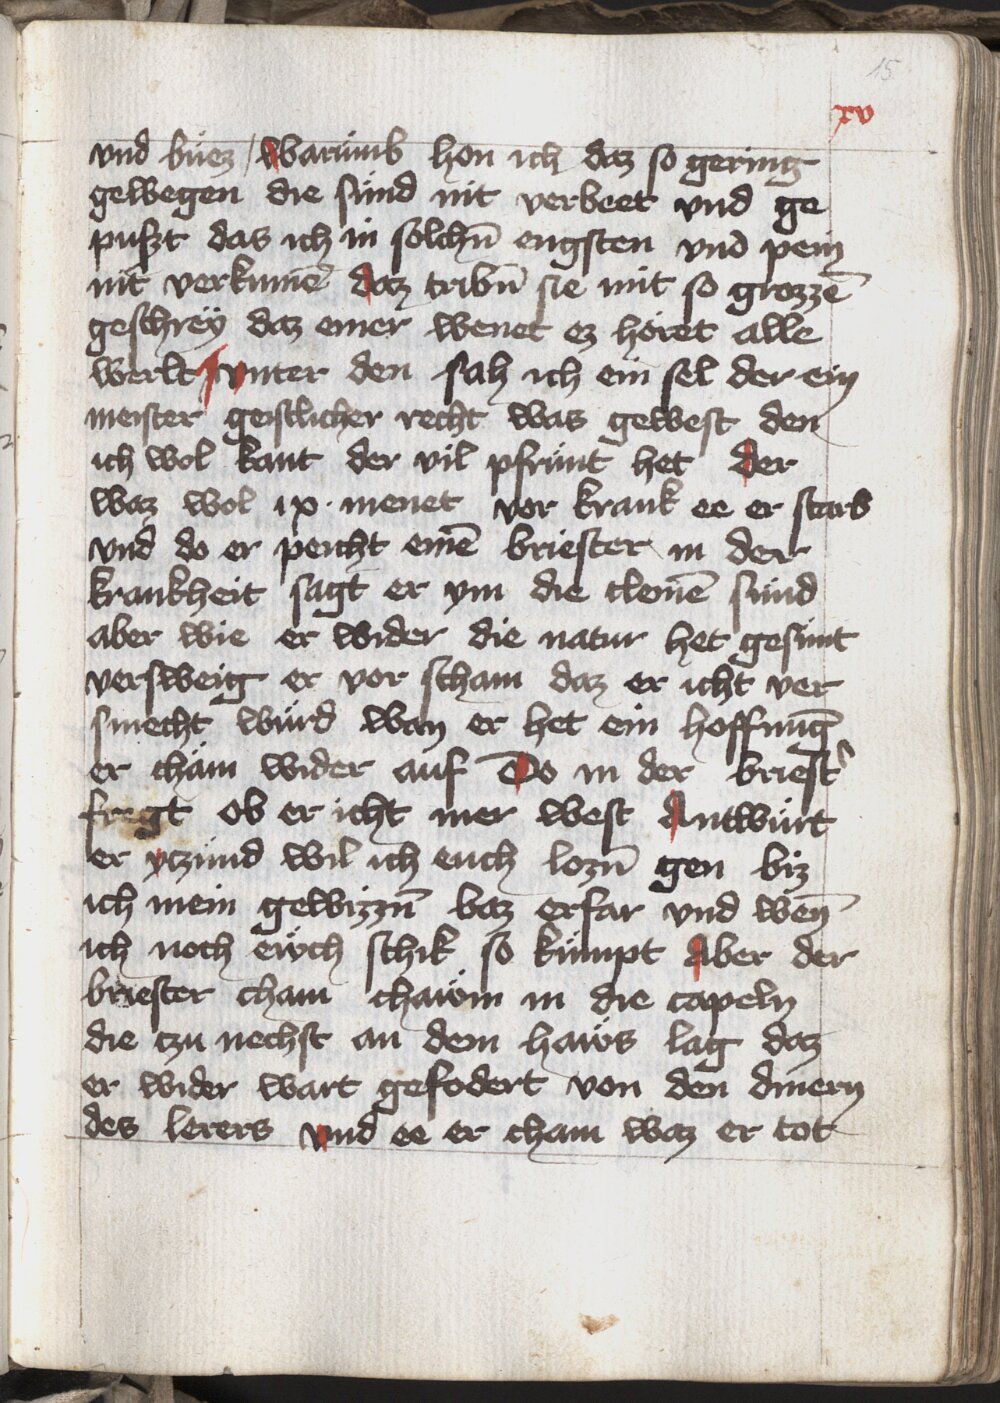 15
xv
vnd büez / Warümb hon ich daz so gering
gewegen die sünd nit verbeet vnd ge
pußzt das ich in solchn̄ engsten vnd pein
nit verkumē daz tribn̄ sie mit so grozzē
geschreÿ daz einer wenet ez höret alle
werlt vnter den sah ich ein sel der ein
meister geistlicher recht was gewest den
ich wol kant der vil pfrünt het der
waz wol ix · menet vor krank ee er starb
vnd do er peicht einē briester in der
krankheit sagt er ym die clenē sünd
aber wie er wider die natur het gesünt
versweig er vor scham daz er icht ver
smecht würd wan er het ein hoffnūg
er chäm wider auf Do in der briest̾
fregt ob er icht mer west Antwürt
er yczünd wil ich euch lozn̄ gen biz
ich mein gewizzn̄ baz erfar vnd wen̄
ich noch ewch schik so kümpt Aber der
briester cham chawm in die capeln
die czu nechst an dem haws lag daz
er wider wart gefodert von den dinern
des lerers vnd ee er cham waz er tot